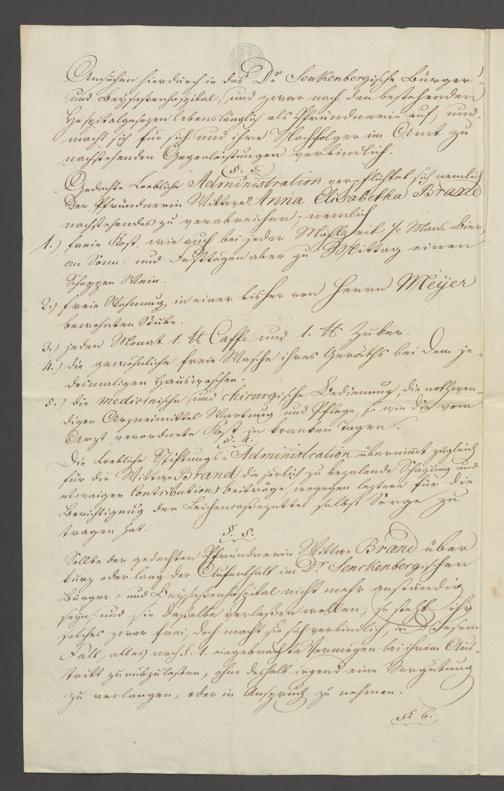 Ansuchen hierdurch in das Dr. Senkenbergische Bürger-
und Beysaßenhospital, und zwar nach den bestehenden
Hospitalgesetzen lebenslänglich als Pfründnerin auf, und
macht sich für sich und ihre Nachfolger im Amt zu
nachstehenden Gegenleistungen verbindlich.
§. 3.
Gedachte Loebliche Administration verpflichtet sich nemlich
der Pfründnerin Wittwe Anna Elisabetha Brand
nachstehendes zu verabreichen; nemlich
1.) freie Kost, wie auch bei jeder Mahlzeit ½ Maas Bier,
an Sonn- und Festtagen aber zu Mittag einen
Schoppen Wein.
2.) freie Wohnung, in einer bisher von Herrn Meyer
bewohnten Stube.
3.) jeden Monat 1. ℔ Caffe und 1. ℔ Zucker.
4.) die gewöhnliche freie Wasche ihres Geräths bei dem je-
desmaligen Hauswaschen.
5.) die medicinische und chirurgische Bedienung, die nothwen-
digen Arzneimittel, Wartung und Pflege, so wie die vom
Arzt verordnete Kost in kranken Tagen.
§. 4.
Die Loebliche Stiftungs-Administration übernimmt zugleich
für die Wittwe Brand, die järlich zu bezahlende Schazung und
etwaigen Contributions beiträge wogegen leztere für die
Berichtigung der Leichencassezettel selbst Sorge zu
tragen hat.
§. 5.
Sollte der gedachten Pfründnerin Wittwe Brand über
kurz oder lang der Aufenthalt im Dr. Senckenbergischen
Bürger- und Beisaßenhospital nicht mehr anständig
seyn und sie dasselbe verlaßen wollen; so steht ihr
solches zwar frei, doch macht sie sich verbindlich, in diesem
Fall, alles nach §. 1. eingebrachte Vermögen bei ihrem Aus-
tritt zurückzulaßen, ohne deshalb irgend eine Vergütung
zu verlangen, oder in Anspruch zu nehmen.
§. 6.